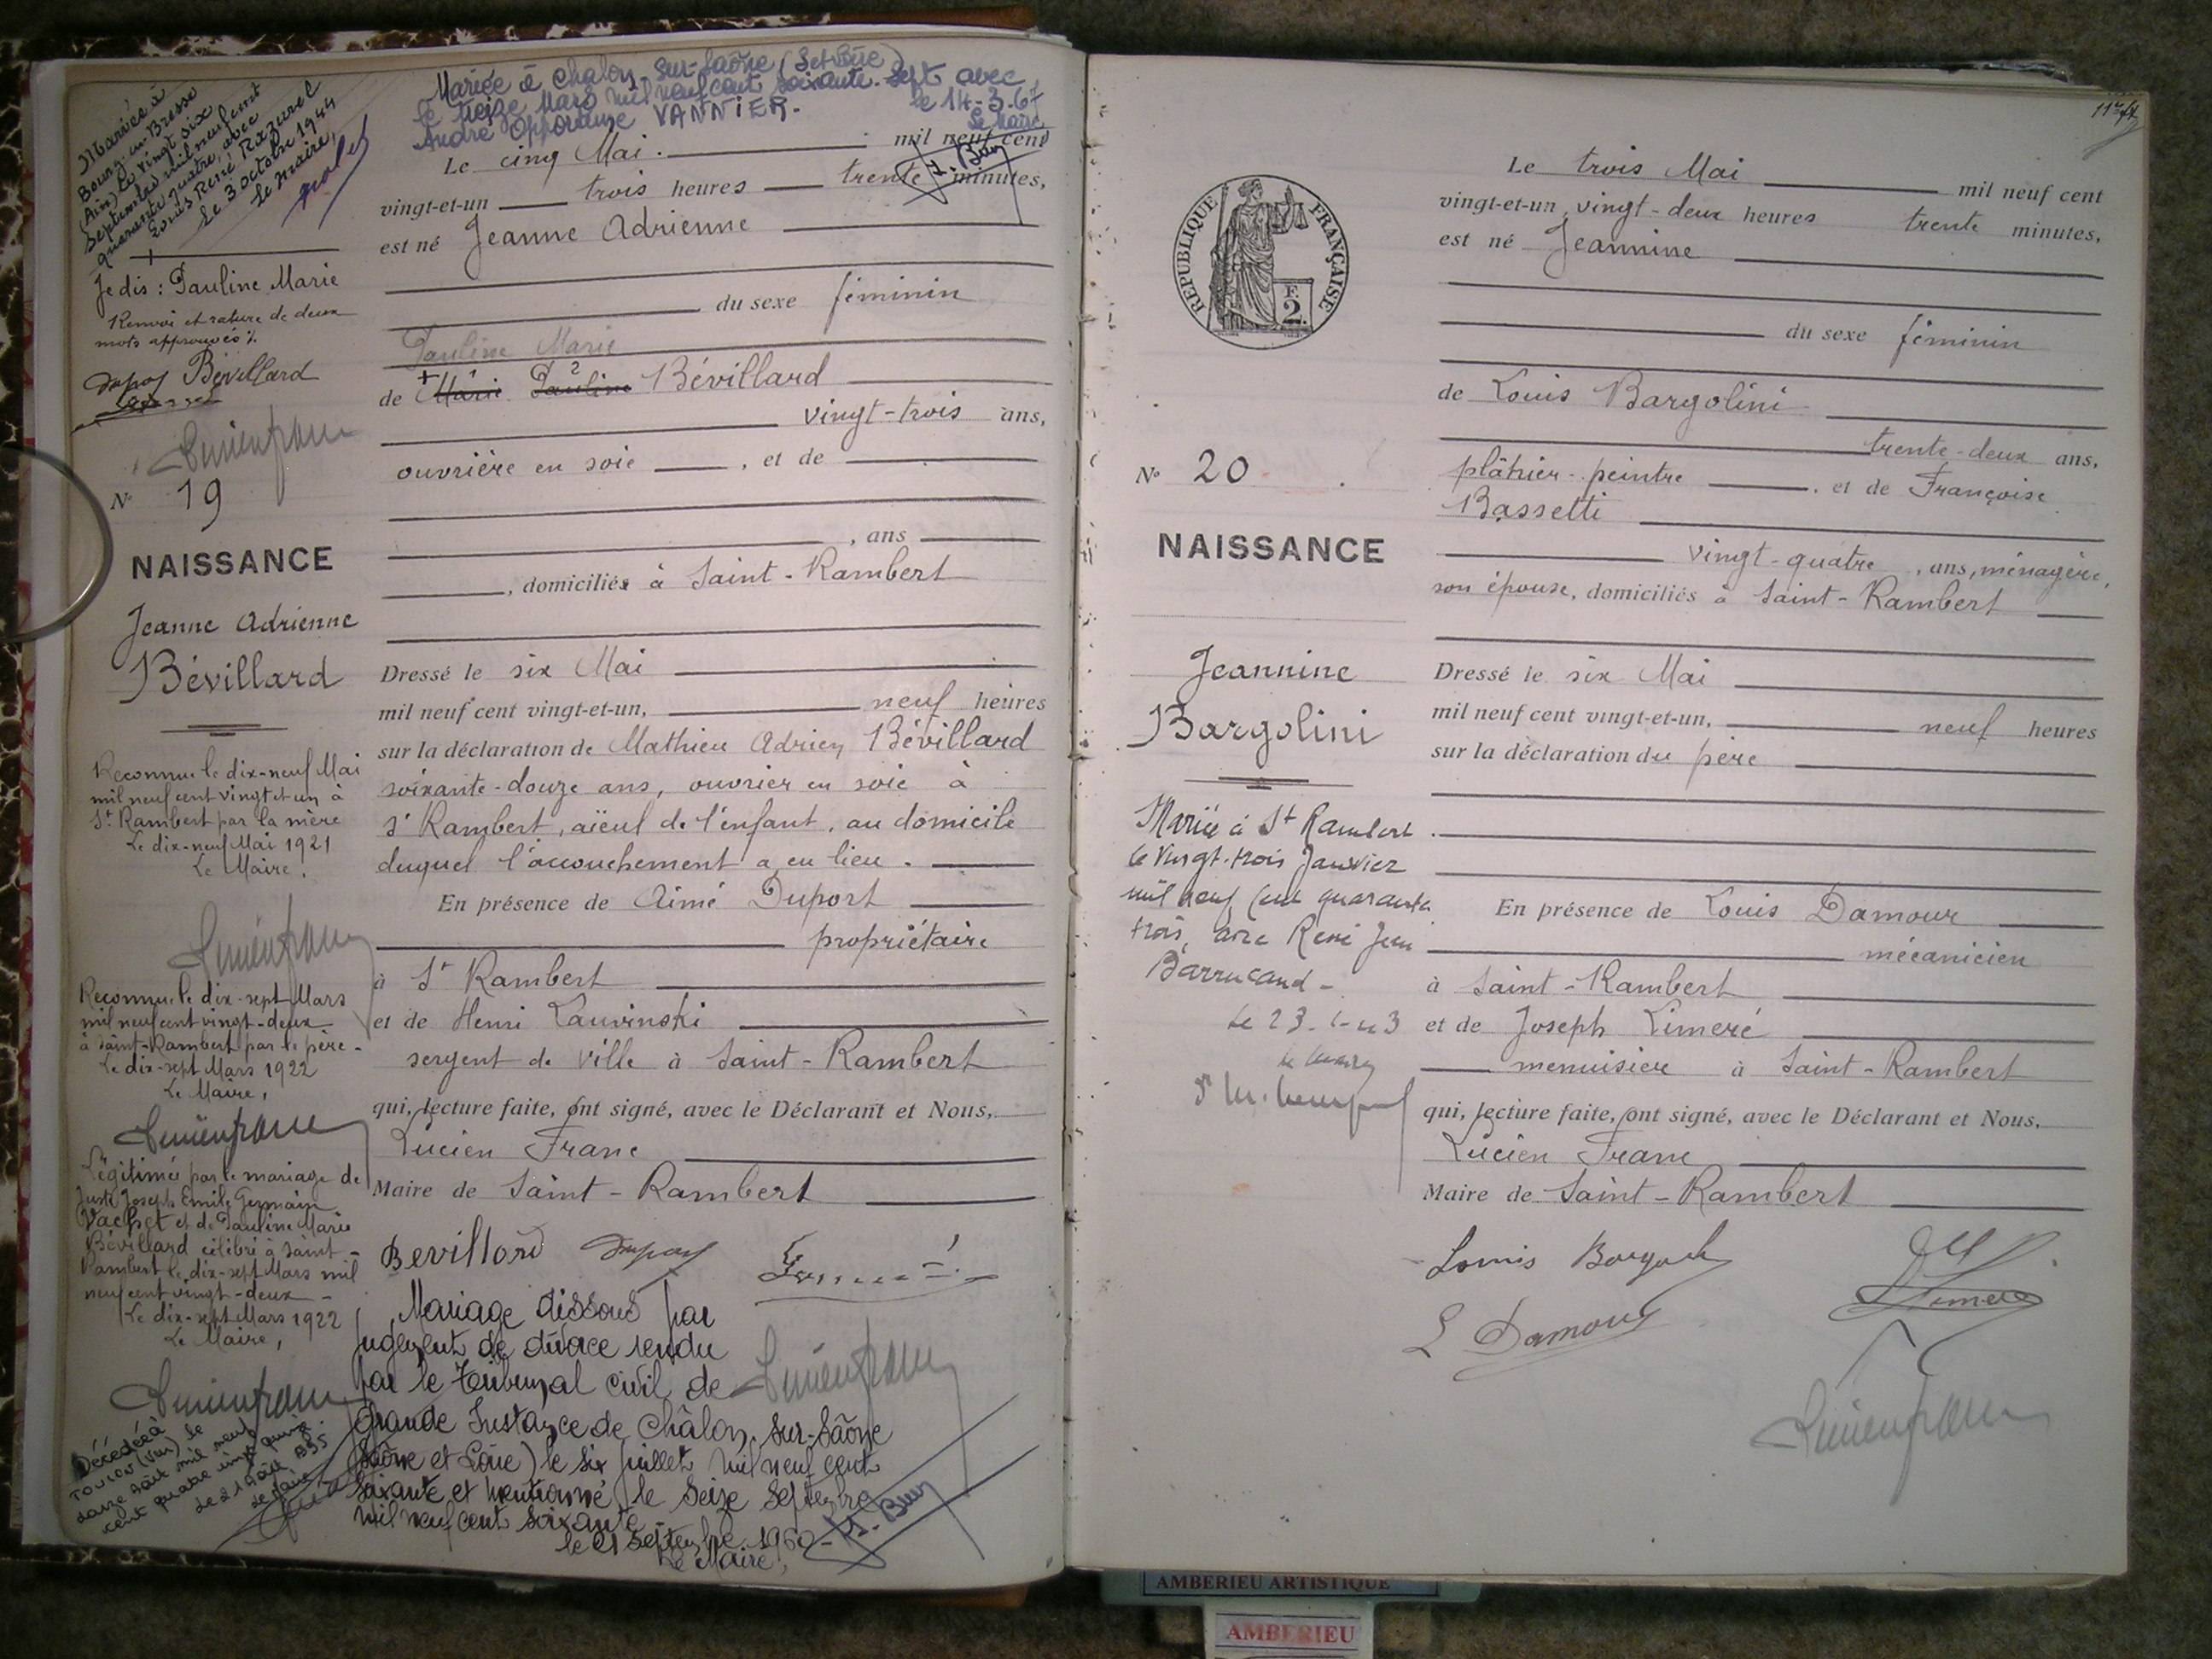 Mariée à
Bourg-en-Bresse
(Ain) le vingt six
septembre mil neuf cent
quarante quatre, avec
Louis René
le 3 octobre 1944
le maire,
Je dis : Pauline Marie
Renvoi et rature de deux
mots approuvés
Bévillard
N° 19
NAISSANCE
Jeanne Adrienne
Bévillard
Reconnue le dix-neuf Mai
mil neuf cent vingt et un à
St Rambert par la mère
Le dix-neuf Mai 1921
Le Maire,
Reconnue le dix-sept Mars
mil neuf cent vingt-deux
à Saint-Rambert par le père -
Le dix-sept Mars 1922
Le Maire,
Légitimée par le mariage de
Juste Joseph Emile Germain
Vachet et de Pauline Marie
Bévillard célébré à Saint-
Rambert le dix-sept Mars mil
neuf cent vingt-deux -
Le dix-sept Mars 1922
Le Maire,
Décédée à
le
Août mil neuf
cent quatre vingt quinze
le 21 Août 1995
Le Maire
Mariée à Chalon-sur-Saône (S et Loire)
le treize Mars mil neuf cent soixante-sept avec
André VANNIER.
le 14-3-67
Le Maire,
Le cinq Mai. mil neuf cent
vingt-et-un trois heures trente minutes,
est né Jeanne Adrienne
du sexe féminin
Pauline Marie
de Marie Pauline Bévillard
vingt-trois ans,
ouvrière en soie , et de
, ans
, domiciliés à Saint-Rambert
Dressé le six Mai
mil neuf cent vingt-et-un, neuf heures
sur la déclaration de Mathieu Adrien Bévillard
soixante-douze ans, ouvrier en soie à
St Rambert, aïeul de l'enfant, au domicile
duquel l'accouchement a eu lieu.
En présence de Aimé Duport
propriétaire
à St Rambert
et de Henri Lauvinski
sergent de ville à Saint-Rambert
qui, lecture faite, ont signé, avec le Déclarant et Nous,
Lucien Franc
Maire de Saint-Rambert
Bevillard
Mariage dissous par
jugement de divorce rendu
par le Tribunal civil de
Grande Instance de Châlon-sur-Saône
(Saône et Loire) le six juillet mil neuf cent
soixante et mentionné le seize septembre
mil neuf cent soixante -
le 21 septembre 1960 -
Le Maire,
REPUBLIQUE FRANÇAISE
F.
2.
N° 20
NAISSANCE
Jeannine
Bargolini
Mariée à St Rambert
le vingt-trois Janvier
mil neuf cent quarante
trois, avec René Jean
Barrucand -
Le 23-1-43
le Maire
Le trois Mai mil neuf cent
vingt-et-un, vingt-deux heures trente minutes,
est né Jeannine
du sexe féminin
de Louis Bargolini
trente-deux ans,
plâtrier-peintre , et de Françoise
Bassetti
vingt-quatre , ans, ménagère,
son épouse, domiciliés à Saint-Rambert
Dressé le six Mai
mil neuf cent vingt-et-un, neuf heures
sur la déclaration du père
En présence de Louis Damour
mécanicien
à Saint-Rambert
et de Joseph Limeré
menuisier à Saint-Rambert
qui, lecture faite, ont signé, avec le Déclarant et Nous,
Lucien Franc
Maire de Saint-Rambert
Louis
L Damour
AMBERIEU ARTISTIQUE
AMBERIEU